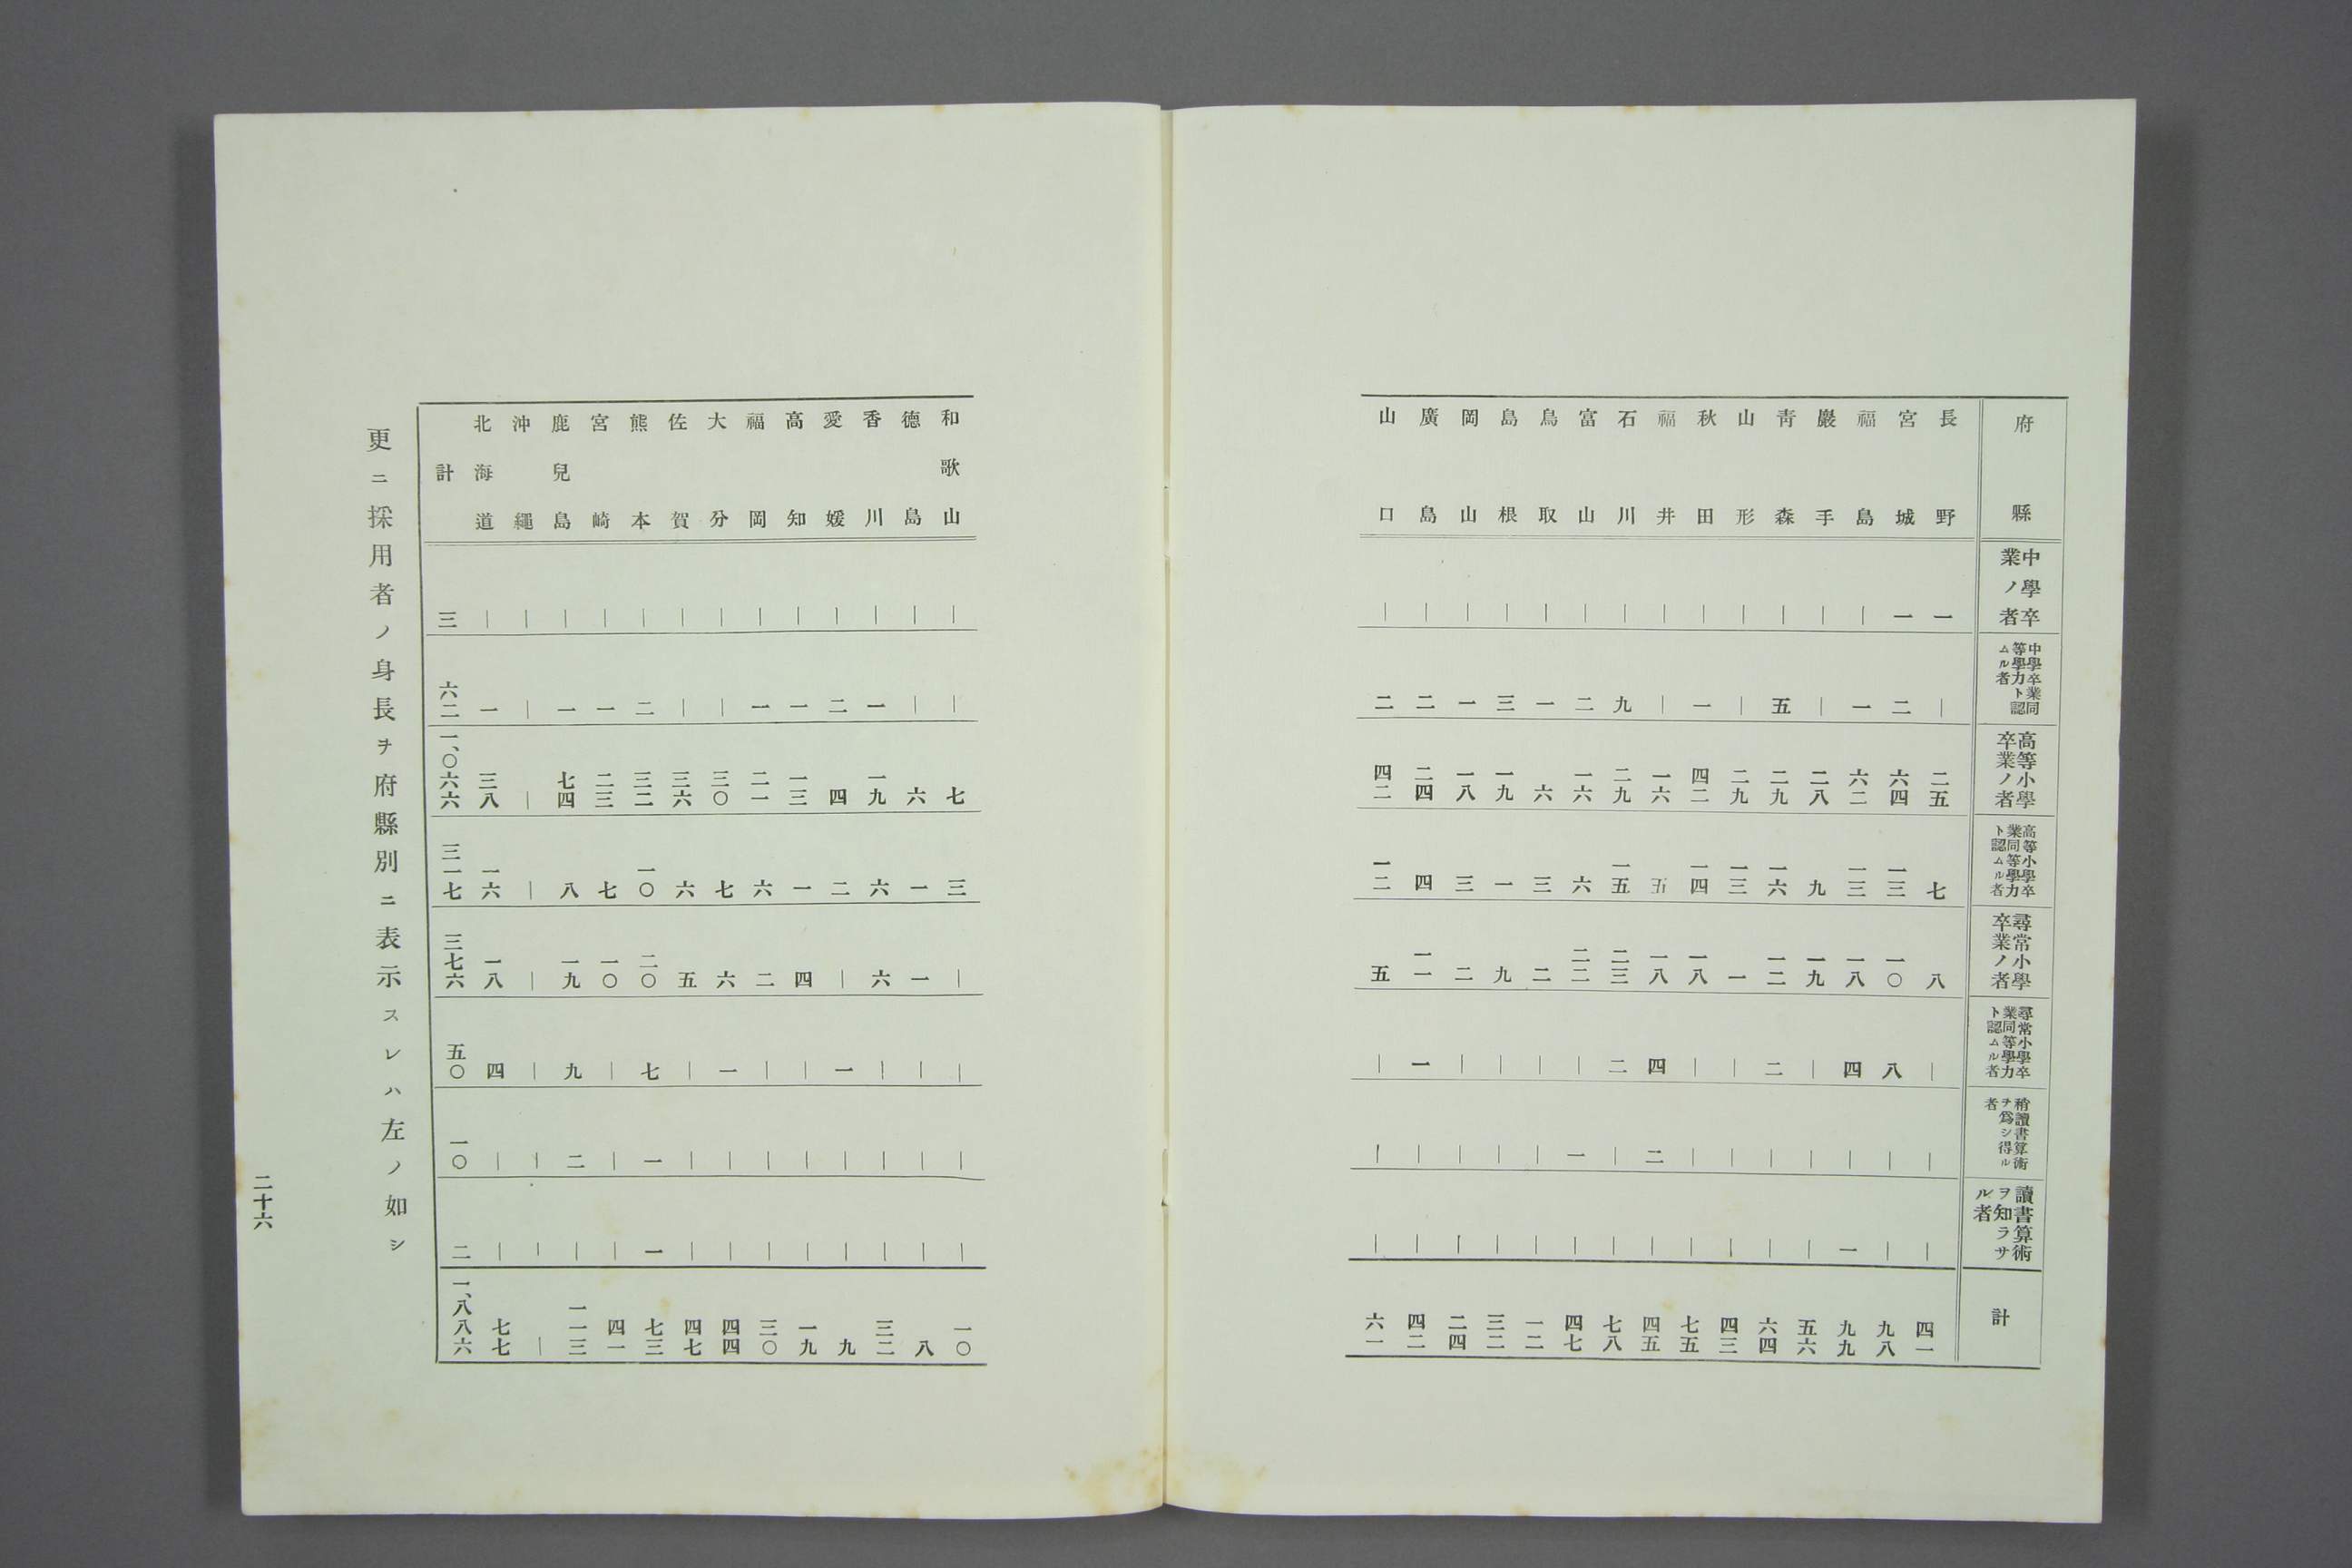 府縣 中學卒業ノ者 中學卒業同等學力ト認ムル者 高等小學卒業ノ者 高等小學卒業同等學力ト認ムル者 尋常小學卒業ノ者 尋常小學卒業同等學力ト認ムル者 稍讀書算術ヲ爲シ得ル者 讀書算術ヲ知ラサル者 計
長野 一 ｜ 二五 七 八 ｜ ｜ ｜ 四一
宮城 一 二 六四 一三 一〇 八 ｜ ｜ 九八
福島 ｜ 一 六二 一三 一八 四 ｜ 一 九九
巖手 ｜ ｜ 二八 九 一九 ｜ ｜ ｜ 五六
靑森 ｜ 五 二九 一六 一二 二 ｜ ｜ 六四
山形 ｜ ｜ 二九 一三 一 ｜ ｜ ｜ 四三
秋田 ｜ 一 四二 一四 一八 ｜ ｜ ｜ 七五
福井 ｜ ｜ 一六 五 一八 四 二 ｜ 四五
石川 ｜ 九 二九 一五 二三 二 ｜ ｜ 七八
富山 ｜ 二 一六 六 二二 ｜ 一 ｜ 四七
鳥取 ｜ 一 六 三 二 ｜ ｜ ｜ 一二
島根 ｜ 三 一九 一 九 ｜ ｜ ｜ 三二
岡山 ｜ 一 一八 三 二 ｜ ｜ ｜ 二四
廣島 ｜ 二 二四 四 一一 一 ｜ ｜ 四二
山口 ｜ 二 四二 一二 五 ｜ ｜ ｜ 六一
和歌山 ｜ ｜ 七 三 ｜ ｜ ｜ ｜ 一〇
德島 ｜ ｜ 六 一 一 ｜ ｜ ｜ 八
香川 ｜ 一 一九 六 六 ｜ ｜ ｜ 三二
愛媛 ｜ 二 四 二 ｜ 一 ｜ ｜ 九
高知 ｜ 一 一三 一 四 ｜ ｜ ｜ 一九
福岡 ｜ 一 二一 六 二 ｜ ｜ ｜ 三〇
大分 ｜ ｜ 三〇 七 六 一 ｜ ｜ 四四
佐賀 ｜ ｜ 三六 六 五 ｜ ｜ ｜ 四七
熊本 ｜ 二 三二 一〇 二〇 七 一 一 七三
宮崎 ｜ 一 二三 七 一〇 ｜ ｜ ｜ 四一
鹿兒島 ｜ 一 七四 八 一九 九 二 ｜ 一一三
沖繩 ｜ ｜ ｜ ｜ ｜ ｜ ｜ ｜ ｜
北海道 ｜ 一 三八 一六 一八 四 ｜ ｜ 七七
計 三 六二 一、〇六六 三一七 三七六 五〇 一〇 二 一、八八六
更ニ採用者ノ身長ヲ府縣別ニ表示スレハ左ノ如シ
二十六